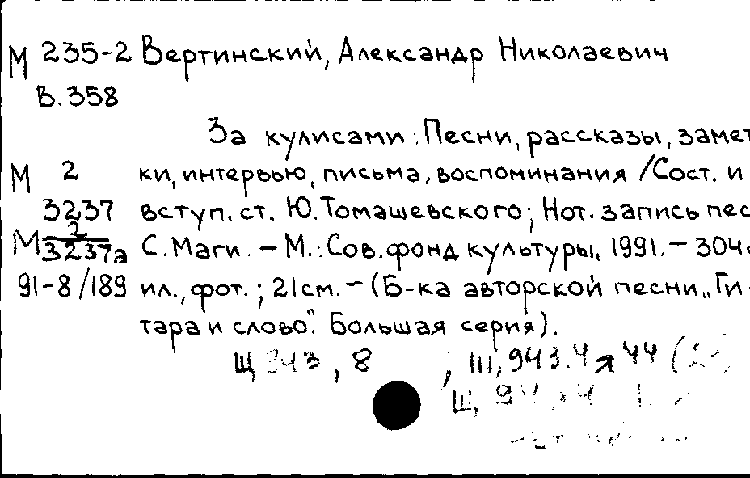 М 235-2 Вертинский, Александр Николаевич
В.358
За кулисами: Песни, рассказы, замет
М 2 ки, интервью, письма, воспоминания /Сост. и
3237 вступ. ст. Ю. Томашевского; Нот. запись пес
М 2/3237а С. Маги. – М.: Сов. фонд культуры, 1991. – 304
91-8/189 ил., фот.; 21см. – (Б-ка авторской песни „Ги-
тара и слово". Большая серия).
Щ 943, 8 , Щ,943.4я44